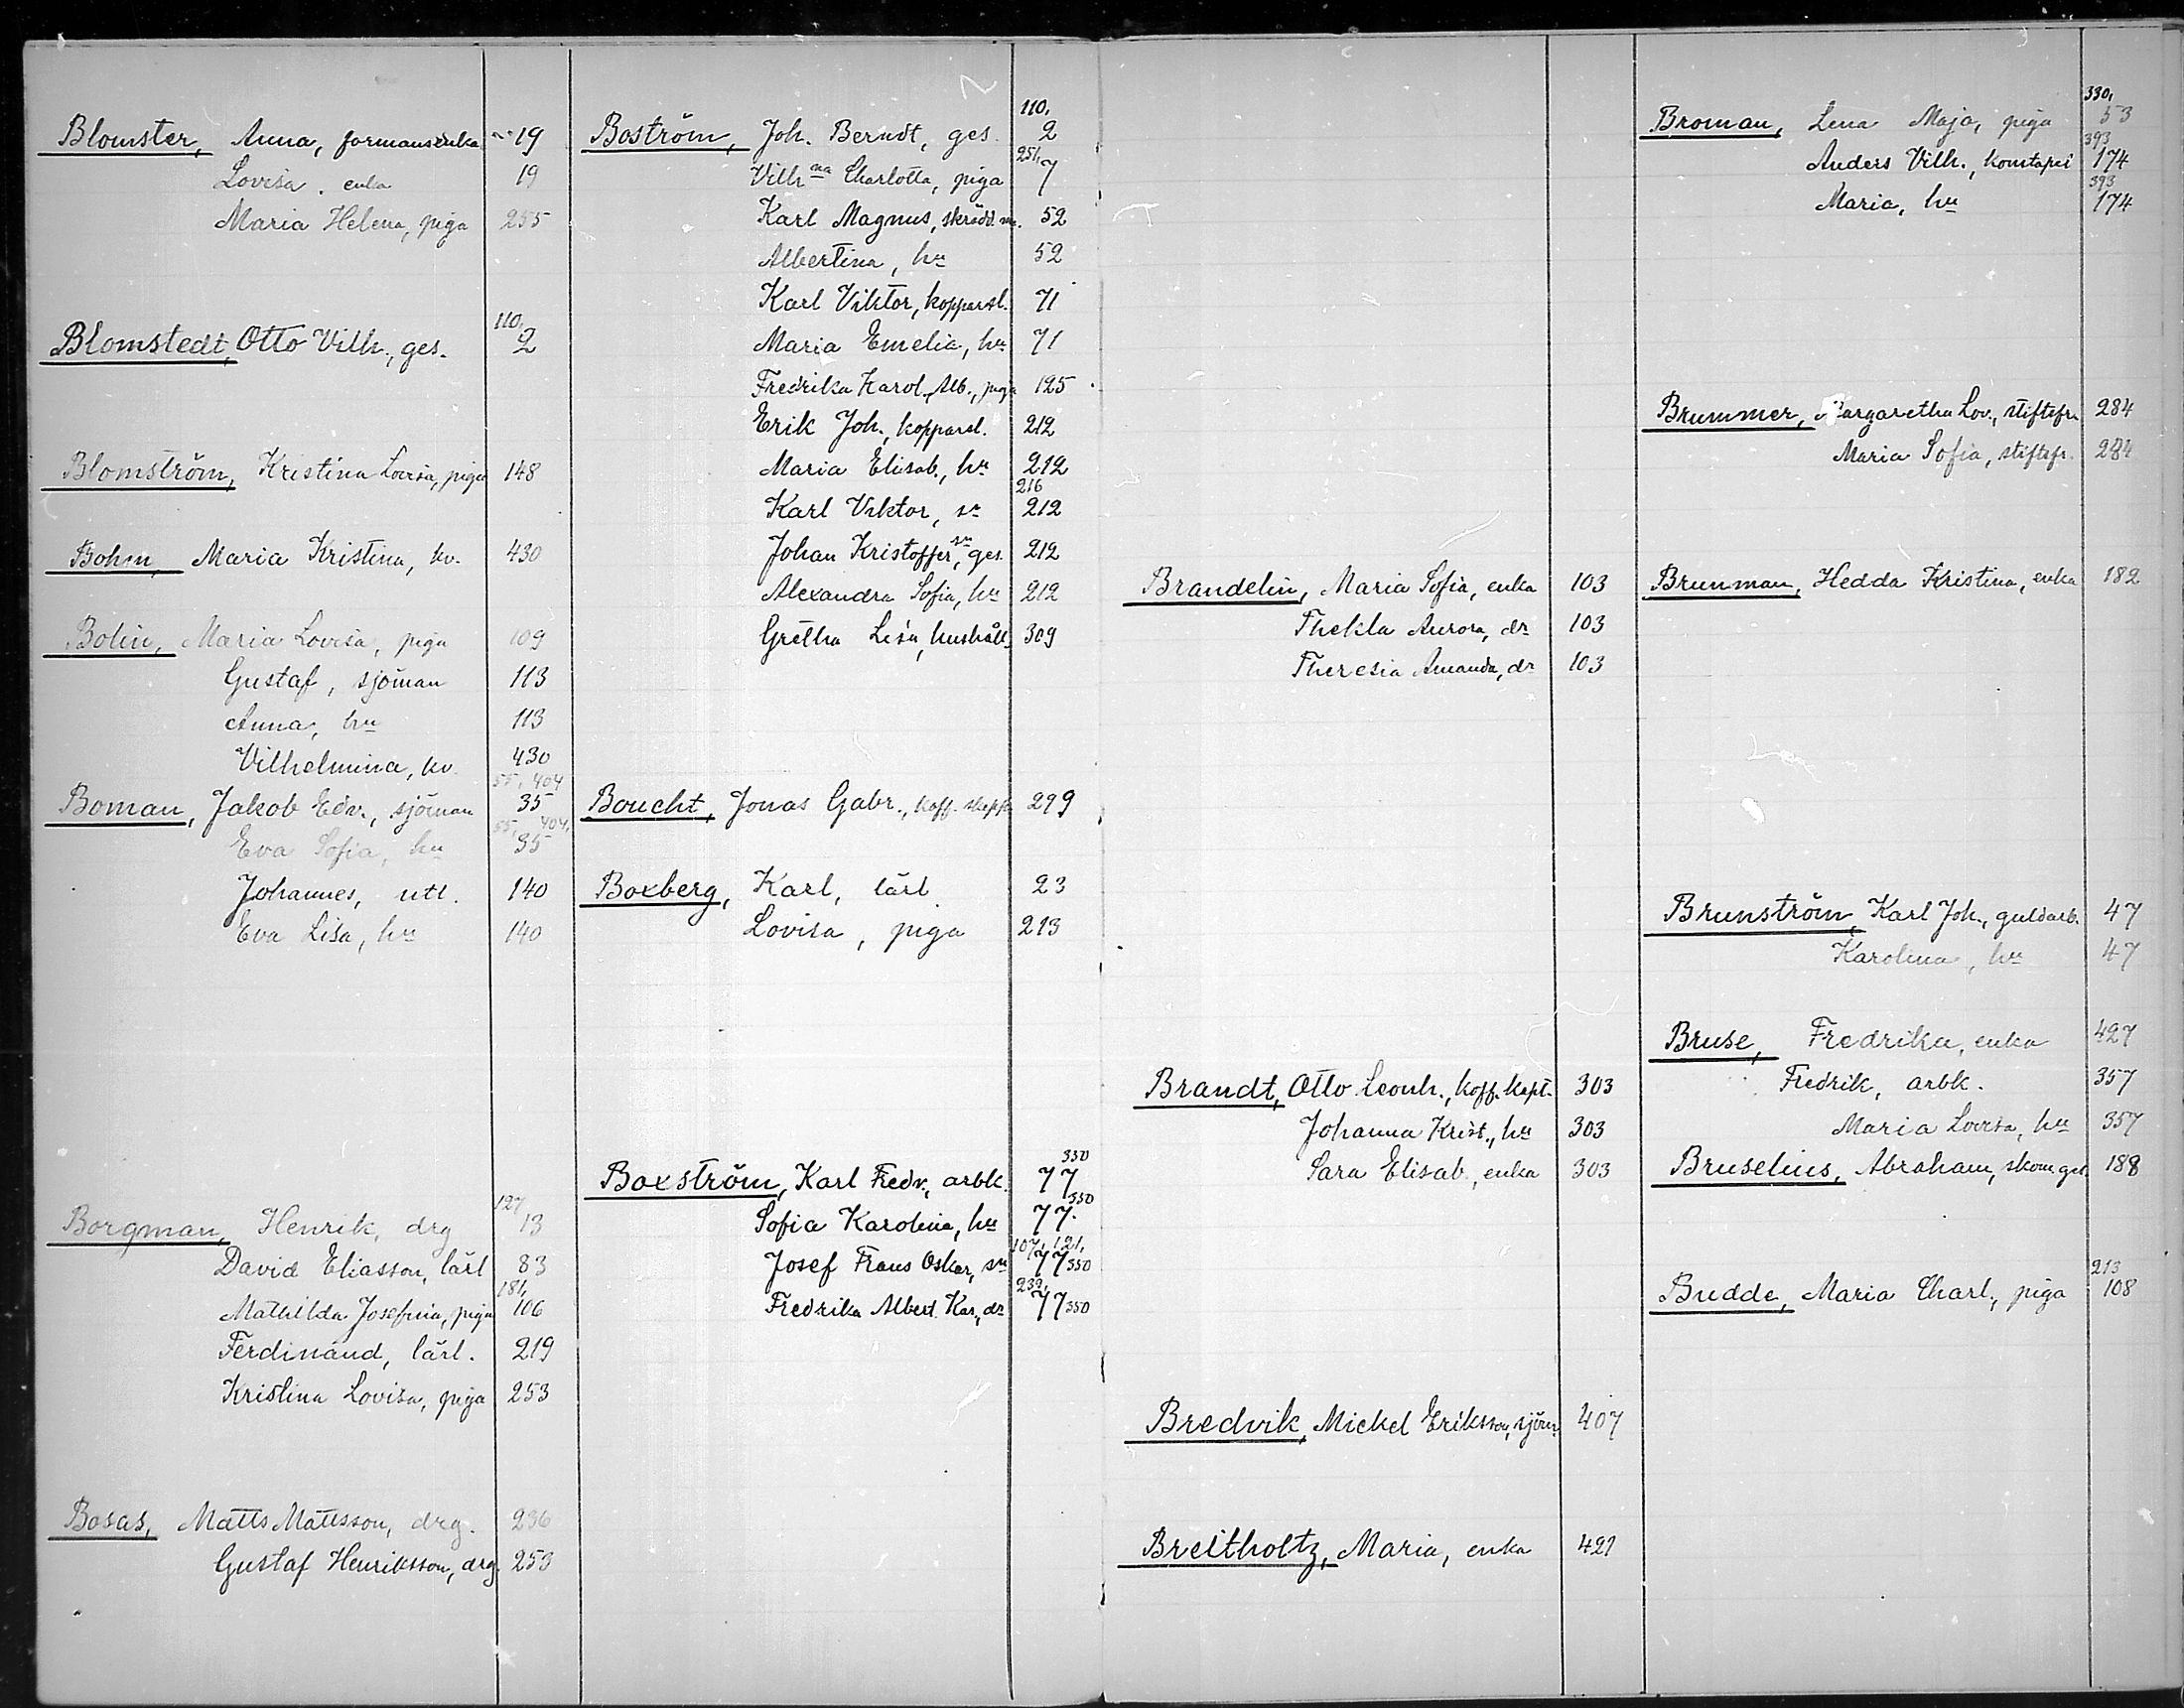 Blomster, Anna, formansenka 19
Lovisa. enka 19
Maria Helena, piga 255
Blomstedt, Otto Vilh., ges. 110, 2
Blomström, Kristina Lovisa, piga 148
Bohm, Maria Kristina, kv. 430
Bolin, Maria Lovisa, piga 109
Gustaf, sjöman 113
Anna, hu 113
Vilhelmina, kv. 430
Boman, Jakob Edv., sjöman 55, 404 35
Eva Sofia, hu 55, 404, 35
Johannes, utl. 140
Eva Lisa, hu 140
Borgman, Henrik, drg 127, 13
David Eliasson, lärl 83
Mathilda Josefina, piga 181, 106
Ferdinand, lärl. 219
Kristina Lovisa, piga 253
Bosas, Matts Mattsson, drg. 236
Gustaf Henriksson, drg. 253
Boström, Joh. Berndt, ges. 110, 2
Vilhna Charlotta, piga 251, 7
Karl Magnus, skrädd. 52
Albertina, hu 52
Karl Viktor, kopparsl. 71
Maria Emelia, hu 71
Fredrika Karol. Alb., piga 125
Erik Joh., kopparsl. 212
Maria Elisab., hu 212
Karl Viktor, sn 216 212
Johan Kristoffer, sn ges. 212
Alexandra Sofia, hu 212
Gretha Lisa, hushåll. 309
Boucht, Jonas Gabr., koff. skepp 299
Boxberg, Karl, lärl. 23
Lovisa, piga 213
Boxström, Karl Fredr., arbk. 350 77
Sofia Karolina, hu 350 77
Josef Frans Oskar, sn 107, 121, 77 350
Fredrika Albert. Kar., dr 232, 77 350
Brandelin, Maria Sofia, enka 103
Thekla Aurora, dr 103
Theresia Amanda, dr 103
Brandt, Otto Leonh., koff. kapt. 303
Johanna Krist., hu 303
Sara Elisab., enka 303
Bredvik, Mickel Eriksson, sjöm. 407
Breitholtz, Maria, enka 421
Broman, Lena Maja, piga 330, 53
Anders Vilh., konstapel 393 174
Maria, hu 393 174
Brummer, Margaretha Lov., stiftsfr. 284
Maria Sofia, stiftsfr. 284
Brunman, Hedda Kristina, enka 182
Brunström, Karl Joh., guldarb. 47
Karolina, hu 47
Bruse, Fredrika, enka 427
Fredrik, arbk. 357
Maria Lovisa, hu 357
Bruselius, Abraham, skom. ges. 188
Budde, Maria Charl., piga 213 108